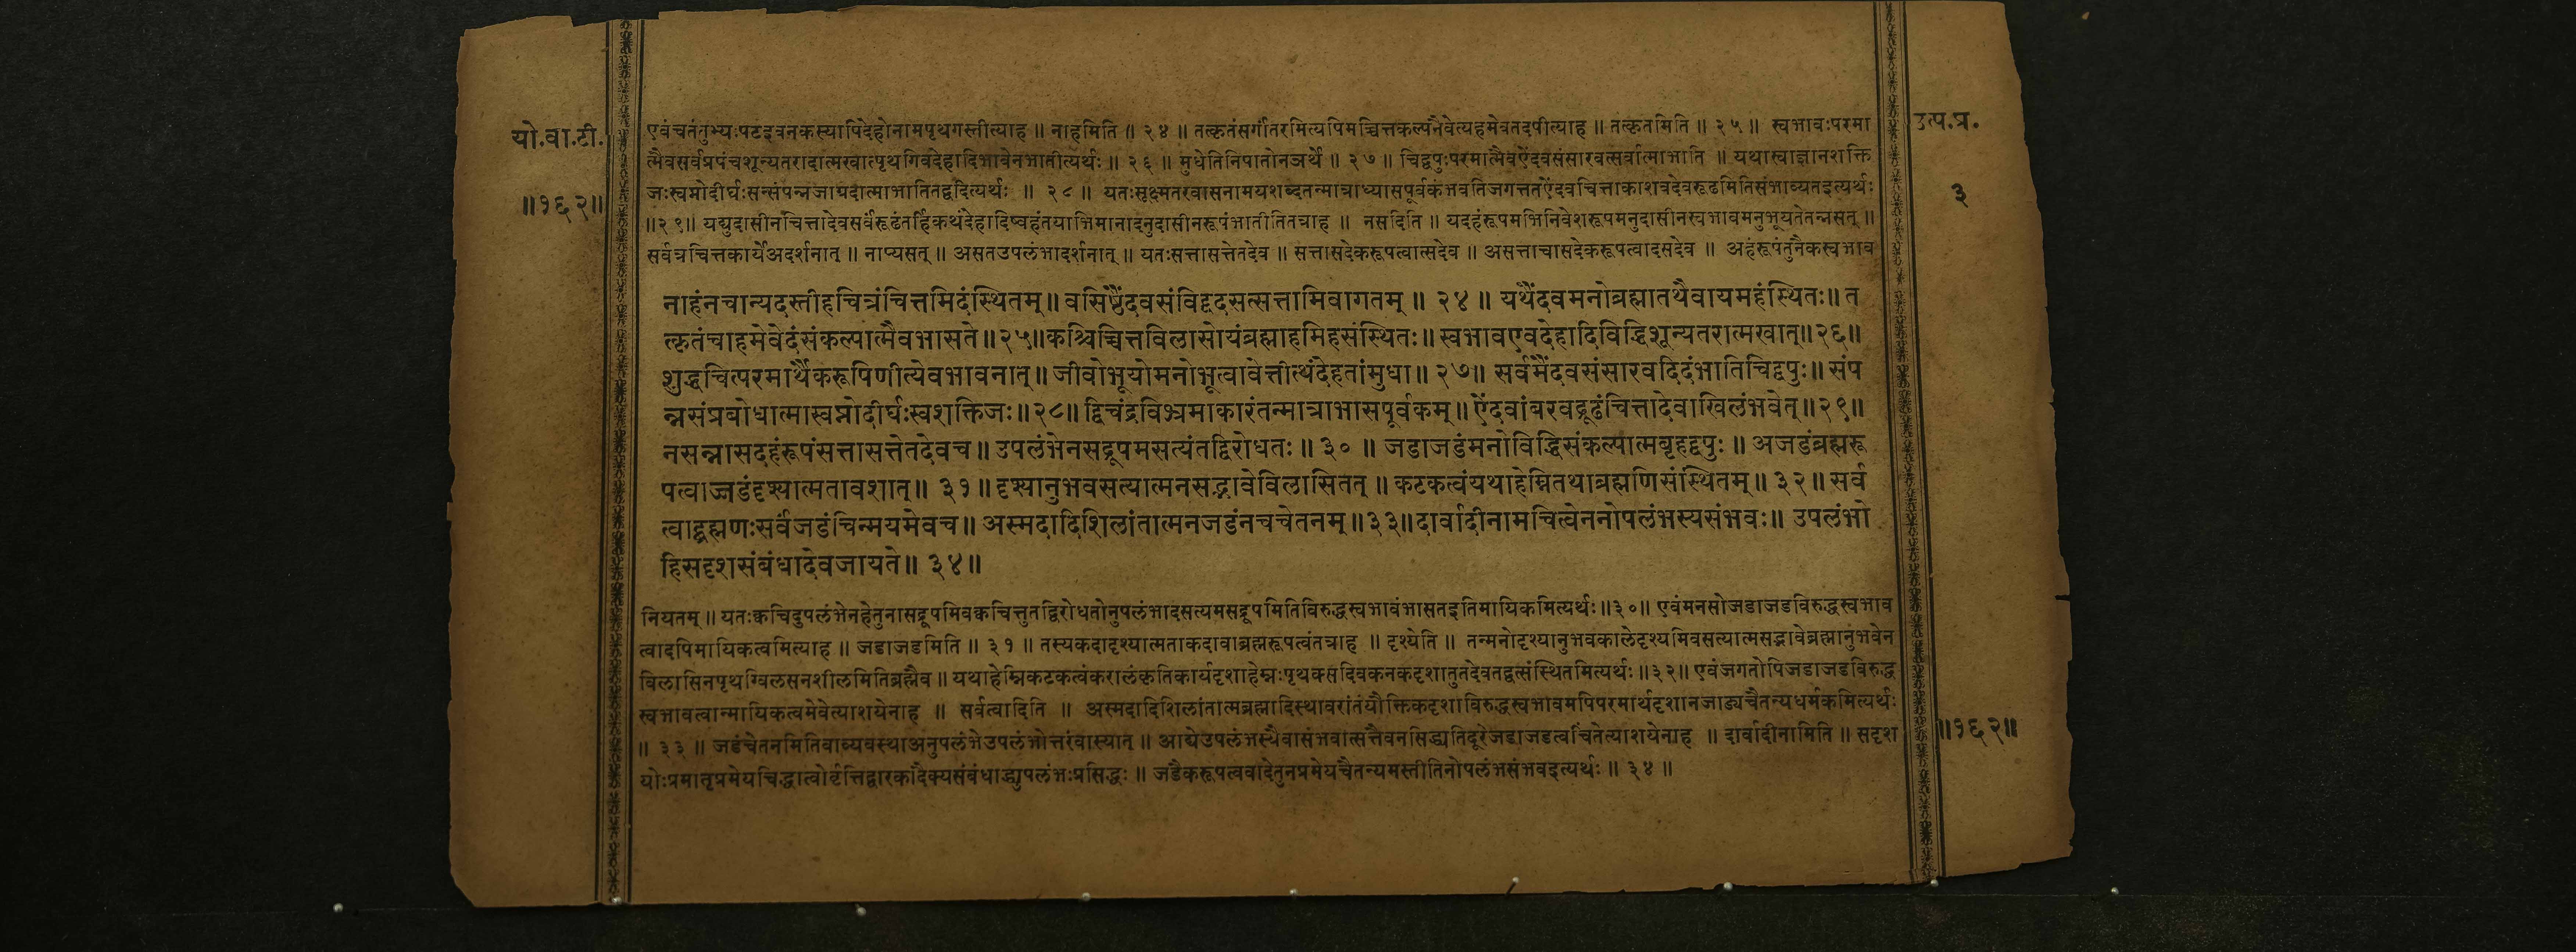 यो.वा.टी.
॥१६२॥
उत्प.प्र.
३
एवंचतंतुभ्यःपटइवनकस्यापिदेहोनामपृथगस्तीत्याह ॥ नाहमिति ॥ २४ ॥ तत्कृतंसर्गांतरमित्यपिमच्चित्तकल्पनैवेत्यहमेवतदपीत्याह ॥ तत्कृतमिति ॥ २५ ॥ स्वभावःपरमा
त्मैवसर्वप्रपंचशून्यतरादात्मखात्पृथगिवदेहादिभावेनभातीत्यर्थः ॥ २६ ॥ मुधेतिनिपातोनञर्थे ॥ २७ ॥ चिद्वपुःपरमात्मैवऐंदवसंसारवत्सर्वात्माभाति ॥ यथास्वाज्ञानशक्ति
जःस्वप्नोदीर्घःसन्संपन्नजाग्रदात्माभातितद्वदित्यर्थः ॥ २८ ॥ यतःसूक्ष्मतरवासनामयशब्दतन्मात्राध्यासपूर्वकंभवतिजगत्ततऐंदवचित्ताकाशवदेवरूढमितिसंभाव्यतइत्यर्थः
॥२९॥ यद्युदासीनचित्तादेवसर्वंरूढंतर्हिकथंदेहादिष्वहंतयाभिमानादनुदासीनरूपंभातीतितत्राह ॥ नसदिति ॥ यदहंरूपमभिनिवेशरूपमनुदासीनस्वभावमनुभूयतेतन्नसत् ॥
सर्वत्रचित्तकार्येअदर्शनात् ॥ नाप्यसत् ॥ असतउपलंभादर्शनात् ॥ यतःसत्तासत्तेतदेव ॥ सत्तासदेकरूपत्वात्सदेव ॥ असत्ताचासदेकरूपत्वादसदेव ॥ अहंरूपंतुनैकस्वभाव
नाहंनचान्यदस्तीहचित्रंचित्तमिदंस्थितम् ॥ वसिष्ठैंदवसंविद्वदसत्सत्तामिवागतम् ॥ २४ ॥ यथैंदवमनोब्रह्मातथैवायमहंस्थितः ॥ त
त्कृतंचाहमेवेदंसंकल्पात्मैवभासते ॥२५॥कश्चिच्चित्तविलासोयंब्रह्माहमिहसंस्थितः ॥ स्वभावएवदेहादिविद्धिशून्यतरात्मखात्॥२६॥
शुद्धचित्परमार्थैकरूपिणीत्येवभावनात् ॥ जीवोभूयोमनोभूत्वावेत्तीत्थंदेहतांमुधा ॥ २७॥ सर्वमैंदवसंसारवदिदंभातिचिद्वपुः ॥ संप
न्नसंप्रबोधात्मास्वप्नोदीर्घःस्वशक्तिजः ॥२८॥ द्विचंद्रविभ्रमाकारंतन्मात्राभासपूर्वकम् ॥ ऐंदवांबरवद्रूढंचित्तादेवाखिलंभवेत् ॥२९॥
नसन्नासदहंरूपंसत्तासत्तेतदेवच ॥ उपलंभेनसद्रूपमसत्यंतद्विरोधतः ॥ ३० ॥ जडाजडंमनोविद्धिसंकल्पात्मबृहद्वपुः ॥ अजडंब्रह्मरू
पत्वाज्जडंदृश्यात्मतावशात् ॥ ३१ ॥ दृश्यानुभवसत्यात्मनसद्भावेविलासितत् ॥ कटकत्वंयथाहेम्नितथाब्रह्मणिसंस्थितम् ॥ ३२ ॥ सर्व
त्वाद्ब्रह्मणःसर्वंजडंचिन्मयमेवच ॥ अस्मदादिशिलांतात्मनजडंनचचेतनम् ॥३३॥दार्वादीनामचित्त्वेननोपलंभस्यसंभवः ॥ उपलंभो
हिसदृशसंबंधादेवजायते ॥ ३४ ॥
नियतम् ॥ यतःक्वचिदुपलंभेनहेतुनासद्रूपमिवक्वचित्तुतद्विरोधतोनुपलंभादसत्यमसद्रूपमितिविरुद्धस्वभावंभासतइतिमायिकमित्यर्थः ॥३०॥ एवंमनसोजडाजडविरुद्धस्वभाव
त्वादपिमायिकत्वमित्याह ॥ जडाजडमिति ॥ ३१ ॥ तस्यकदादृश्यात्मताकदावाब्रह्मरूपत्वंतत्राह ॥ दृश्येति ॥ तन्मनोदृश्यानुभवकालेदृश्यमिवसत्यात्मसद्भावेब्रह्मानुभवेन
विलासिनपृथग्विलसनशीलमितिब्रह्मैव ॥ यथाहेम्निकटकत्वंकरालंकृतिकार्यदृशाहेम्नःपृथक्सदिवकनकदृशातुतदेवतद्वत्संस्थितमित्यर्थः ॥३२॥ एवंजगतोपिजडाजडविरुद्ध
स्वभावत्वान्मायिकत्वमेवेत्याशयेनाह ॥ सर्वत्वादिति ॥ अस्मदादिशिलांतात्मब्रह्मादिस्थावरांतंयौक्तिकदृशाविरुद्धस्वभावमपिपरमार्थदृशानजाड्यचैतन्यधर्मकमित्यर्थः
॥ ३३ ॥ जडंचेतनमितिवाव्यवस्थाअनुपलंभेउपलंभोत्तरंवास्यात् ॥ आद्येउपलंभस्यैवासंभवात्सत्तैवनसिद्ध्यतिदूरेजडाजडत्वचिंतेत्याशयेनाह ॥ दार्वादीनामिति ॥ सदृश
योःप्रमातृप्रमेयचिद्धात्वोर्वृत्तिद्वारकादैक्यसंबंधाद्ध्युपलंभःप्रसिद्धः ॥ जडैकरूपत्ववादेतुनप्रमेयचैतन्यमस्तीतिनोपलंभसंभवइत्यर्थः ॥ ३४ ॥
॥१६२॥